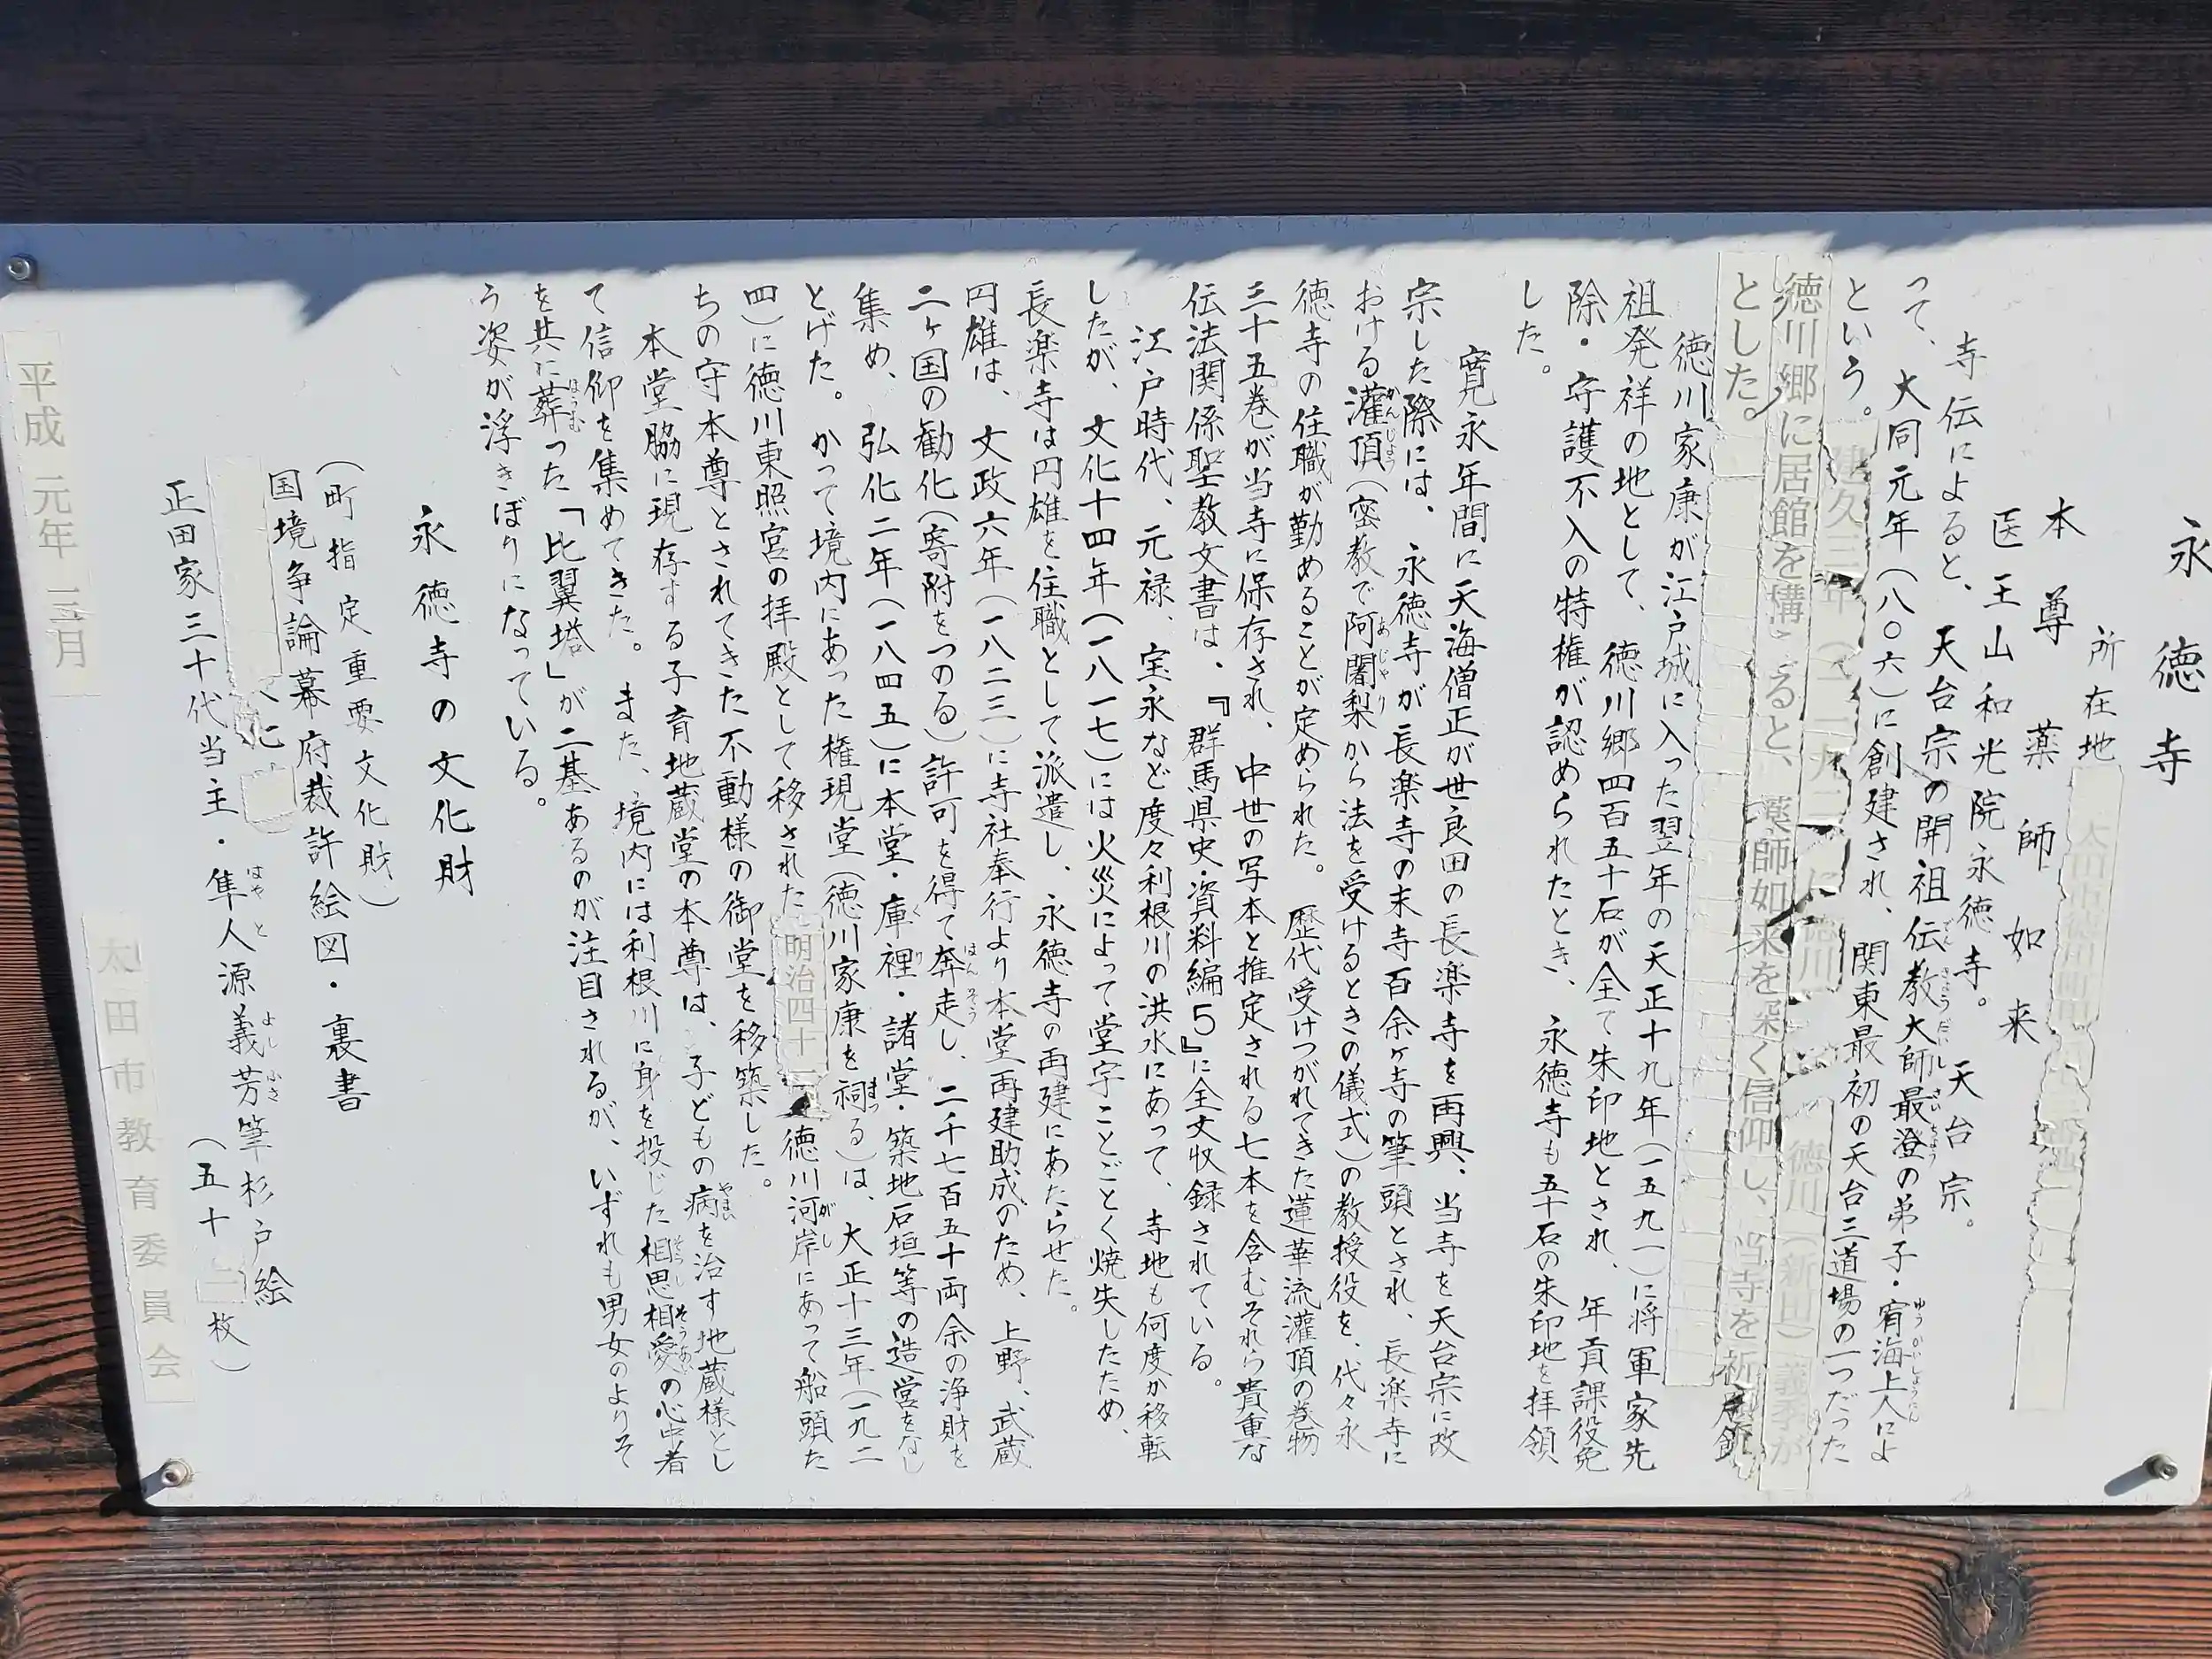 永徳寺
所在地 太田市徳川町
本尊 薬師如来
医王山和光院永徳寺。天台宗。
寺伝によると、天台宗の開祖伝教大師最澄の弟子・宥海上人によ
って、大同元年(八〇六)に創建され、関東最初の天台三道場の一つだった
という。建久三年(一一九二)に徳川 徳川(新田)義季が
徳川郷に居館を構えると、薬師如来を深く信仰し、当寺を祈願所
とした。
徳川家康が江戸城に入った翌年の天正十九年(一五九一)に将軍家先
祖発祥の地として、徳川郷四百五十石が全て朱印地とされ、年貢課役免
除・守護不入の特権が認められたとき、永徳寺も五十石の朱印地を拝領
した。
寛永年間に天海僧正が世良田の長楽寺を再興、当寺を天台宗に改
宗した際には、永徳寺が長楽寺の末寺百余ヶ寺の筆頭とされ、長楽寺に
おける灌頂(密教で阿闍梨から法を受けるときの儀式)の教授役を、代々永
徳寺の住職が勤めることが定められた。歴代受けつがれてきた蓮華流灌頂の巻物
三十五巻が当寺に保存され、中世の写本と推定される七本を含むそれら貴重な
伝法関係聖教文書は、『群馬県史・資料編5』に全文収録されている。
江戸時代、元禄、宝永など度々利根川の洪水にあって、寺地も何度か移転
したが、文化十四年(一八一七)には火災によって堂宇ことごとく焼失したため、
長楽寺は円雄を住職として派遣し、永徳寺の再建にあたらせた。
円雄は、文政六年(一八二三)に寺社奉行より本堂再建助成のため、上野、武蔵
二ヶ国の勧化(寄附をつのる)許可を得て奔走し、二千七百五十両余の浄財を
集め、弘化二年(一八四五)に本堂・庫裡・諸堂・築地石垣等の造営をなし
とげた。かって境内にあった権現堂(徳川家康を祠る)は、大正十三年(一九二
四)に徳川東照宮の拝殿として移された 明治四十 徳川河岸にあって船頭た
ちの守本尊とされてきた不動様の御堂を移築した。
本堂脇に現存する子育地蔵堂の本尊は、子どもの病を治す地蔵様とし
て信仰を集めてきた。また、境内には利根川に身を投じた相思相愛の心中者
を共に葬った「比翼塔」が二基あるのが注目されるが、いずれも男女のよりそ
う姿が浮きぼりになっている。
永徳寺の文化財
(町指定重要文化財)
国境争論幕府裁許絵図・裏書
正田家三十代当主・隼人源義芳筆杉戸絵
(五十二枚)
平成元年三月
太田市教育委員会